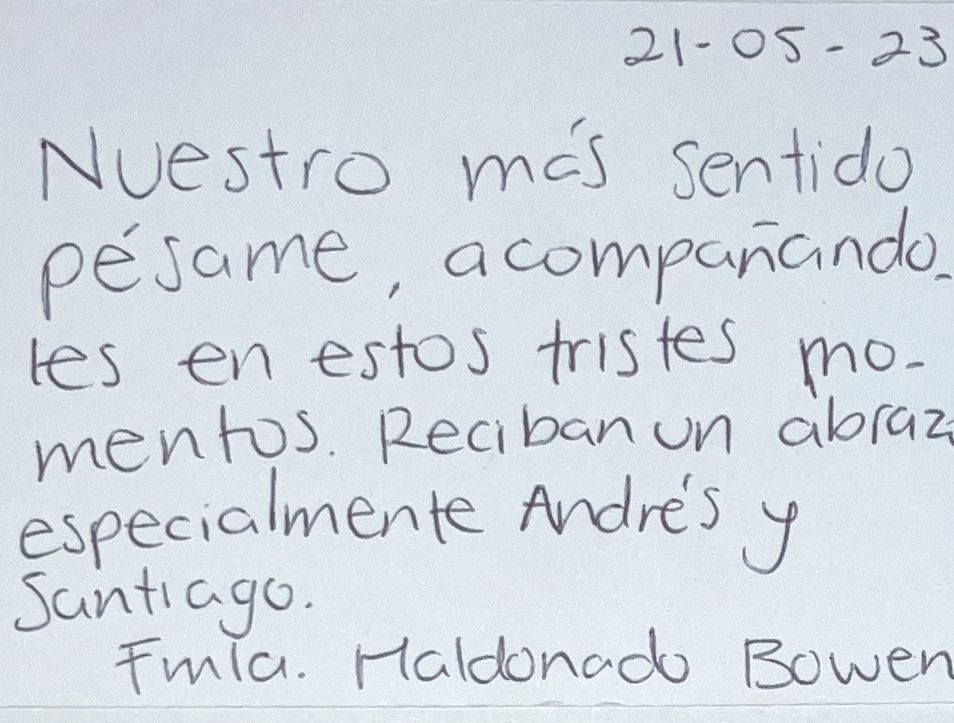 21-05-23
Nuestro más sentido
pésame, acompañando-
les en estos tristes mo-
mentos. Reciban un abraz
especialmente Andrés y
Santiago.
Fmla. Maldonado Bowen